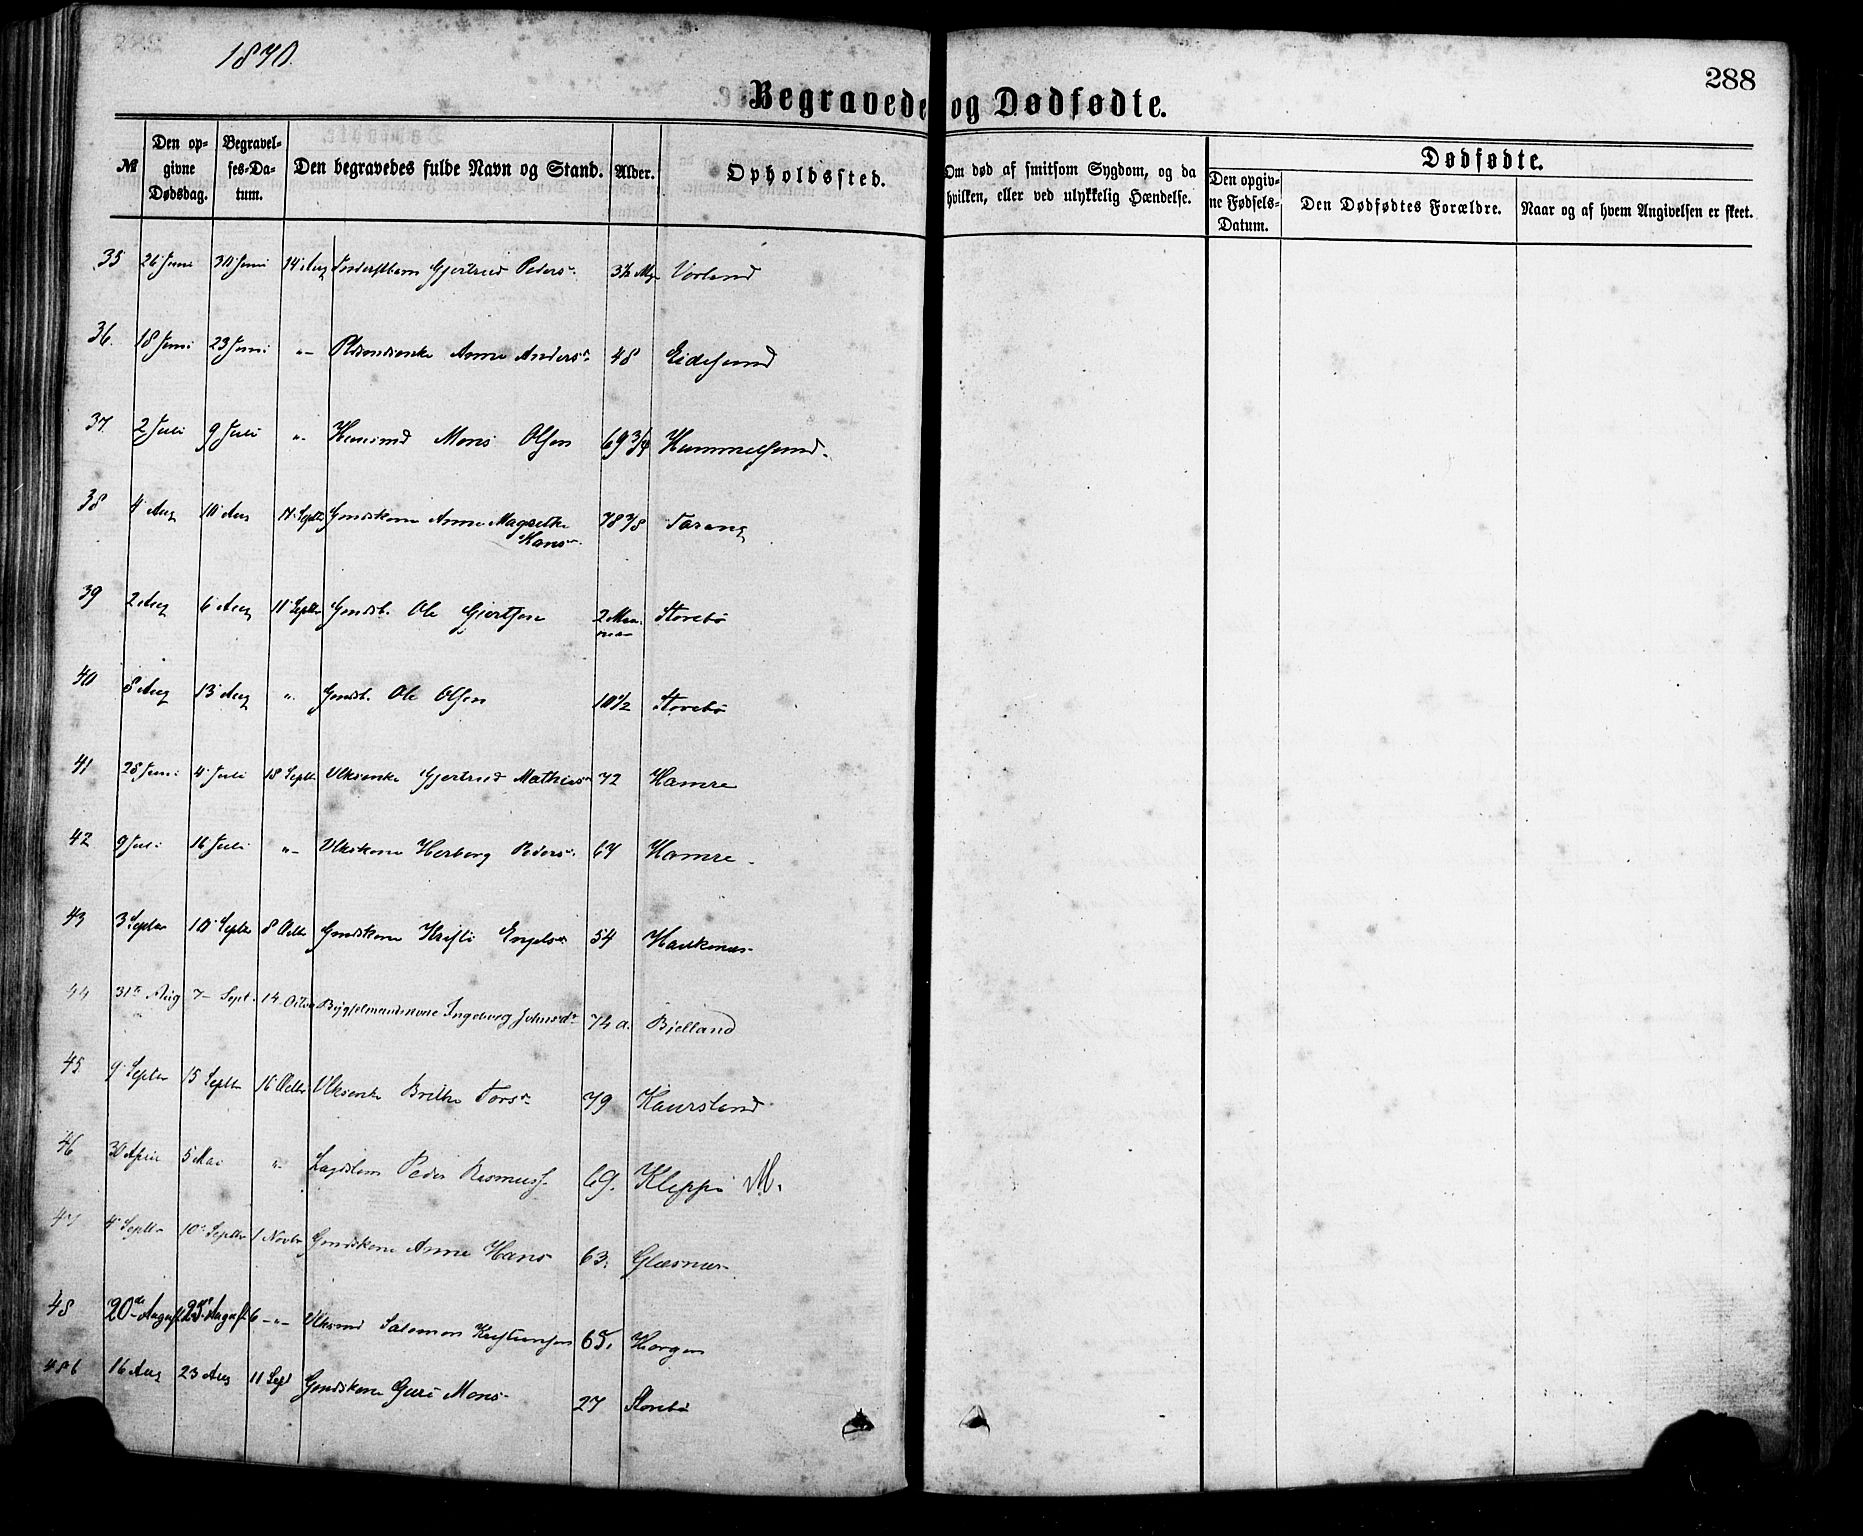 1870.
288
Begravede og Dødfødte.
№
Den opgivne Dødsdag.
Begravelses-Datum.
Den begravedes fulde Navn og Stand.
Alder.
Opholdssted.
Om død af smitsom Sygdom, og da hvilken, eller ved ulykkelig Hændelse.
Dødfødte.
Den opgivne Fødsels-Datum.
Den Dødfødtes Forældre.
Naar og af hvem Angivelsen er skeet.
35 26 Juni 30 Juni 14 Aug Gjertrud Peders 3½ Vorland
36. 18 Juni 23 Juni -"- Anne Anders 48 Eidesund
37. 2 Juli 9 Juli " Mons Olsen 69 3/4 Hummelsund.
38 4 Aug 10 Aug Septbr Gmdskone Anne Magrethe Hans 78 3/8 Tarang
39 2 Aug 6 Aug 11 Septbr Gmdsb. Ole Gjertsen 2 Maaneder Storebø
40 8 Aug 13 Aug " Gmdsb. Ole Olsen 10½ Storebø
41 28 Juni 4 Juli 18 Septbr Vlksenke Gjertrud Mathias 72 Hamre
42 9 Juli 16 Juli -"- Vlkskone Herborg Peders 67 Hamre
43 3 Septbr 10 Septbr 8 Octbr Gmdskone Kristi Engels 54 Haukenæs
44 31te Aug 7 Sept. 14 Octbr Bygselmandskone Ingeborg Johnsdr 74 a. Bjelland
45 9 Septbr 15 Septbr 16 Octbr Vlksenke Brithe Tors 79 Haursland
46 30 April 5 Mai " Lægdslem Peder Rasmuss. 69. Kleppe M.
47 4 Septbr 10 Septbr 1 Novbr Gmdskone Anne Hans 63. Glæsnæs
48 20de August 25de August 6 -"- Vlksmd Salomon Kristensen 65. Horgen
48b 16 Aug 23 Aug 11 Sept Gmdskone Guri Mons 27 Storebø